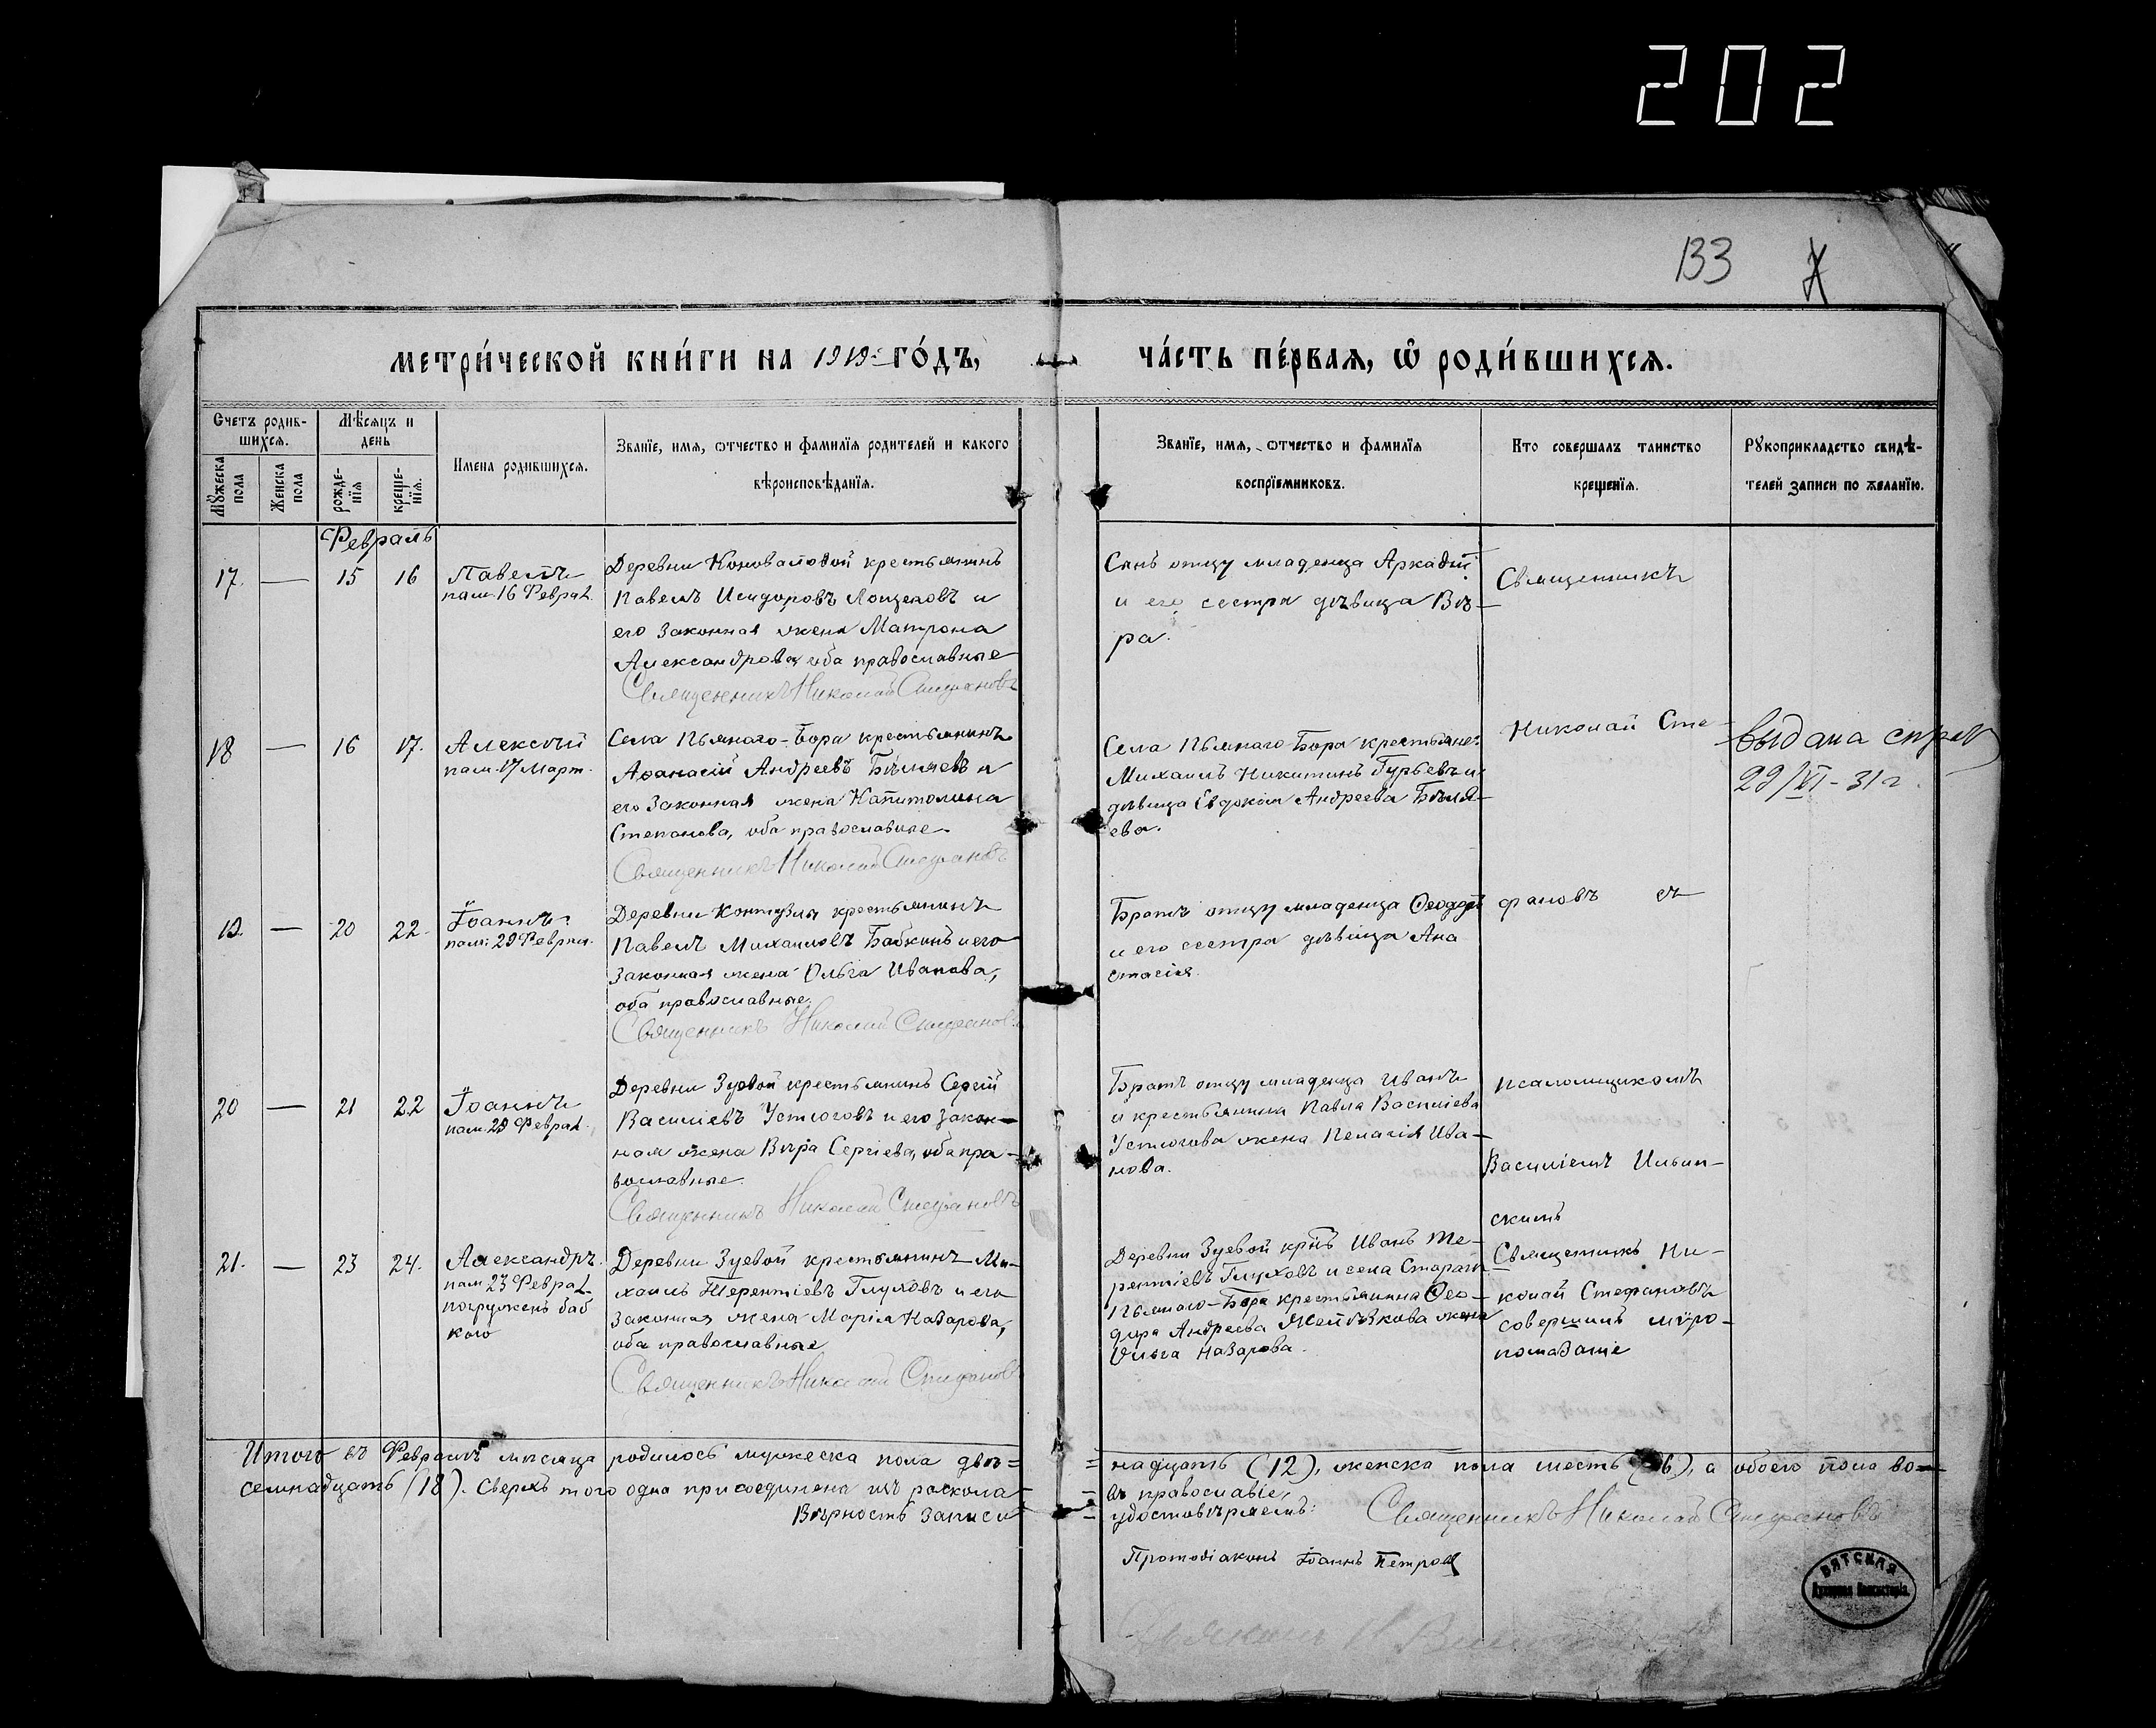 202
133
метри́ческой кни́ги на 1919 го́дъ,
ча́сть пе́рвая, ѡ҆ роди́вшихсѧ.
Счетъ родив-
шихсѧ.
Мꙋжеска
пола
Женска
пола
Мѣсѧцъ и
день
рожде-
нїѧ
креще-
нїѧ.
Имена родившихсѧ.
Званїе, имѧ, ѿчество и фамилїѧ родителей и какого
вѣроисповѣданїѧ.
Званїе, имѧ, ѿчество и фамилїѧ
воспрїемниковъ.
Кто совершалъ таинство
крещенїѧ.
Рꙋкоприкладство свидѣ-
телей записи по желанїю.
Февраль
17. — 15 16
Павелъ
пам. 16 Феврал.
Деревни Коноваловой крестьянинъ
Павелъ Исидоровъ Лощековъ и
его законная жена Матрона
Александрова, оба православные
Священникъ Николай Стефановъ
Сынъ отцу младенца Аркадій
и его сестра дѣвица Вѣ-
ра.
Священникъ
18 — 16 17.
Алексій
пам. 17 Март.
Села Пьянаго-Бора крестьянинъ
Аѳанасій Андреевъ Бѣляевъ и
его законная жена Капитолина
Степанова, оба православные.
Священникъ Николай Стефановъ
Села Пьянаго Бора крестьяне:
Михаилъ Никитинъ Гурьевъ и
дѣвица Евдокія Андреева Бѣля-
ева.
Николай Сте-
выдана справ
29/VI-31 г.
19. — 20 22.
Іоаннъ
пам: 29 Феврал.
Деревни Контузлы крестьянинъ
Павелъ Михаиловъ Бабкинъ и его
законная жена Ольга Иванова,
оба православные.
Священникъ Николай Стефановъ
Братъ отцу младенца Ѳеодоръ
и его сестра дѣвица Ана
стасія.
фановъ съ
20 — 21 22
Іоаннъ
пам. 29 Феврал.
Деревни Зуевой крестьянинъ Сергій
Василіевъ Устюговъ и его закон-
ная жена Вѣра Сергіева, оба пра-
вославные.
Священникъ Николай Стефановъ
Братъ отцу младенца Иванъ
и крестьянина Павла Василіева
Устюгова жена Пелагія Ива-
нова.
псаломщикомъ
Василіемъ Ильин-
скимъ
21. — 23 24.
Александръ.
пам 23 Феврал.
погруженъ баб
кою
Деревни Зуевой крестьянинъ Ми-
хаилъ Терентіевъ Глуховъ и его
законная жена Марія Назарова,
оба православные
Священникъ Николай Стефановъ
Деревни Зуевой крнъ Иванъ Те-
рентіевъ Глуховъ и села Стараго
Пьянаго-Бора крестьянина Ѳео-
дора Андреева жена
Ольга Назарова.
Священникъ Ни-
колай Стефановъ
совершилъ мѵро-
помазаніе
Итого въ Февралѣ мѣсяцѣ родилось мужеска пола двѣ=
=надцать (12), женска пола шесть (6), а обоего пола во=
семнадцать (18). Сверхъ того одна присоединена изъ раскола
=въ православіе.
Вѣрность записи
=удостовѣряемъ: Священникъ Николай Стефановъ
Протодіаконъ Іоаннъ Петровъ
ВЯТСКАЯ
Духовная Консисторія.